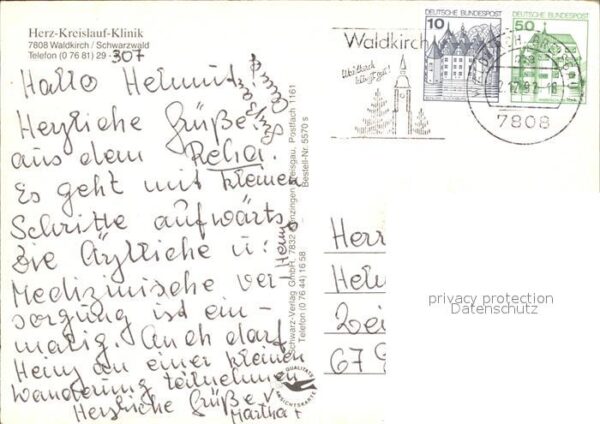 Herz-Kreislauf-Klinik
7808 Waldkirch / Schwarzwald
Telefon (0 76 81) 29 - 307
Hallo Helmut
Herzliche Grüße
aus dem Reha.
Es geht mit kleinen
Schritte aufwärts
Die Ärztliche u.
Medizinische Ver-
sorgung ist ein-
malig. Auch darf
Heinz an einer kleinen
Wanderung teilnehmen
Herzliche Grüße v.
Martha +
Heinz
Schwarz-Verlag GmbH, 7832 Kenzingen/Breisgau, Postfach 1161
Telefon (0 76 44) 16 58
Bestell-Nr. 5570 s
QUALITÄTS
ANSICHTSKARTE
Waldkirch
10
DEUTSCHE BUNDESPOST
50
DEUTSCHE BUNDESPOST
7808
Herr
Helm
67
privacy protection
Datenschutz